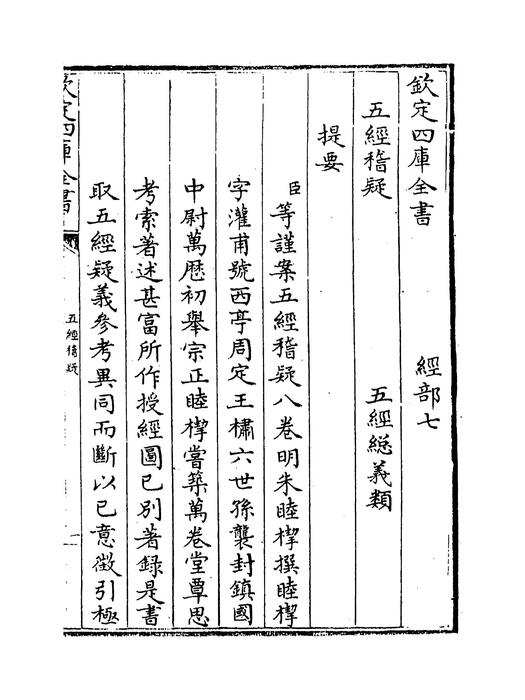 欽定四庫全書　經部七
五經稽疑　五經總義類
提要
臣等謹案五經稽疑八卷明朱睦㮮撰睦㮮
字灌甫號西亭周定王橚六世孫襲封鎮國
中尉萬歴初舉宗正睦㮮嘗築萬卷堂覃思
考索著述甚富所作授經圖已别著録是書
取五經疑義參考異同而斷以已意徵引極
欽定四庫全書
五經稽疑
一